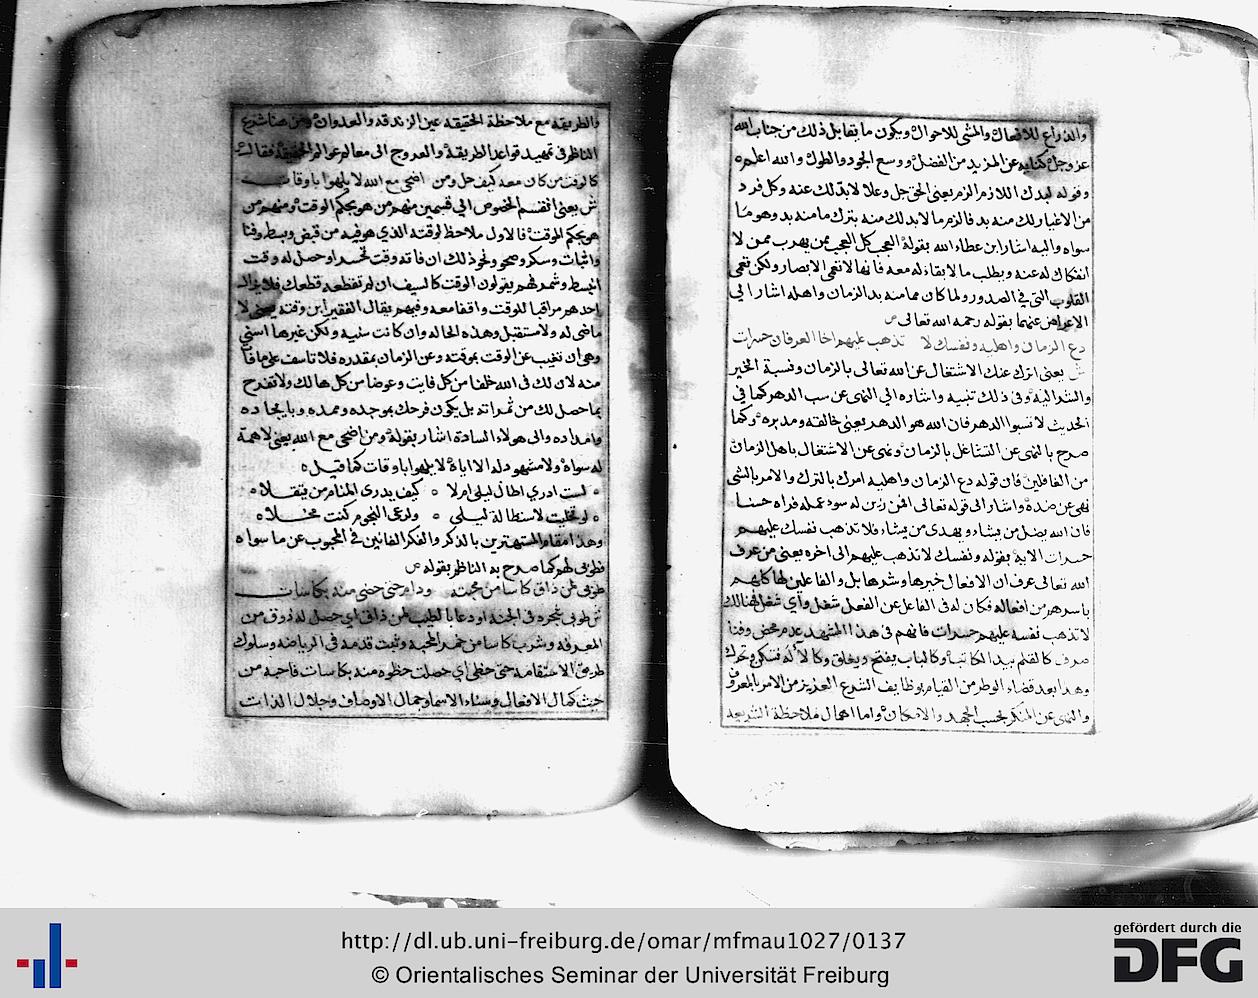 والذراع للافعال والمشي للاحوال ويكون ما يقابل ذلك من جناب الله
عز وجل كناية عن المزيد من الفضل ووسع الجود والطول والله اعلم
وقوله لبدك اللازم الزم يعني الحق جل وعلا لابد لك عنه وكل فرد
من الاغيار لك منه بد فالزم ما لابد لك منه بترك ما منه بد وهو ما
سواه واليه اشار ابن عطاء الله بقوله العجب كل العجب ممن يهرب ممن لا
انفكاك له عنه ويطلب ما لا بقاء له معه فانها لا تعمى الابصار ولكن تعمى
القلوب التي في الصدور ولما كان مما منه بد الزمان واهله اشار الى
الاعراض عنهما بقوله رحمه الله تعالى ص
دع الزمان واهليه ونفسك لا تذهب عليهم اخا العرفان حسرات
ش يعني اترك عنك الاشتغال عن الله تعالى بالزمان ونسبة الخير
والشر اليه وفي ذلك تنبيه واشارة الى النهي عن سب الدهر كما في
الحديث لا تسبوا الدهر فان الله هو الدهر يعني خالقه ومدبره وكما
صرح بالنهي عن التشاغل بالزمان ونهى عن الاشتغال باهل الزمان
من الغافلين فان قوله دع الزمان واهليه امرك بالترك والامر بالشي
نهي عن ضده واشار الى قوله تعالى افمن زين له سوء عمله فراه حسنا
فان الله يضل من يشاء ويهدي من يشاء فلا تذهب نفسك عليهم
حسرات الاية بقوله ونفسك لا تذهب عليهم الى اخره يعني من عرف
الله تعالى عرف ان الافعال خيرها وشرها بل والفاعلين لها كلهم
باسرهم من افعاله فكان له في الفاعل عن الفعل شغل واي شغل فهنالك
لا تذهب نفسه عليهم حسرات فانهم في هذا المشهد عدم محض وفنا
صرف كالقلم بيد الكاتب وكالباب يفتح ويغلق وكالآلة فتكره وتحرك
وهذا بعد قضاء الوطر من القيام بوظايف الشرع العزيز من الامر بالمعروف
والنهي عن المنكر بحسب الجهد والامكان واما اهمال ملاحظة الشريعة
والطريقة مع ملاحظة الحقيقة عين الزندقة والعدوان ومن هنا شرع
الناظم في تمهيد قواعد الطريقة والعروج الى معالم عوالم الحقيقة فقال
كالوقت من كان معه كيف حل ومن اضحى مع الله لا يلهوا باوقات
ش يعني انقسم الخصوص الى قسمين منهم من هو بحكم الوقت ومنهم من
هو بحكم الموقت فالاول ملاحظ لوقته الذي هو فيه من قبض وبسط وفنا
واثبات وسكر وصحو ونحو ذلك ان فاته وقت تحسر او حصل له وقت
انبسط وشمر فهم يقولون الوقت كالسيف ان لم تقطعه قطعك فلا يزال
احدهم مراقبا للوقت واقفا معه وفيهم يقال الفقير ابن وقته يعني لا
ماضي له ولا مستقبل وهذه الحالة وان كانت سنية ولكن غيرها اسنى
وهي ان تغيب عن الوقت بموقته وعن الزمان بمقدره فلا تاسف على ما فات
منه لان لك في الله خلفا من كل فايت وعوضا من كل هالك ولا تفرح
بما حصل لك من ثمراته بل يكون فرحك بموجده وممده وبايجاده
وامداده والى هولاء السادة اشار بقوله ومن اضحى مع الله يعني لا همة
له سواه ولا مشهود له الا اياه لا يلهوا باوقات كما قيل
لست ادري اطال ليلي ام لا كيف يدري المنام من يتقلا
لو تخليت لاستطالة ليلي ولرعى النجوم كنت مخلا
وهذا مقام المستهترين بالذكر والفكر الفانين في المحبوب عن ما سواه
فطوبى لهم كما صرح به الناظم بقوله ص
طوبى لمن ذاق كاسا من محبته ودام حتى حضي منه بكاسات
ش طوبى شجرة في الجنة او دعا بالطيب لمن ذاق اي حصل له ذوق من
المعرفة وشرب كاسا من خمر المحبة وثبت قدمه في الرياضة وسلوك
طريق الاستقامة حتى حظي اي حصلت حظوه منه بكاسات فاحبه من
حيث كمال الافعال وسناء الاسما وجمال الاوصاف وجلال الذات
http://dl.ub.uni-freiburg.de/omar/mfmau1027/0137
© Orientalisches Seminar der Universität Freiburg
gefördert durch die
DFG